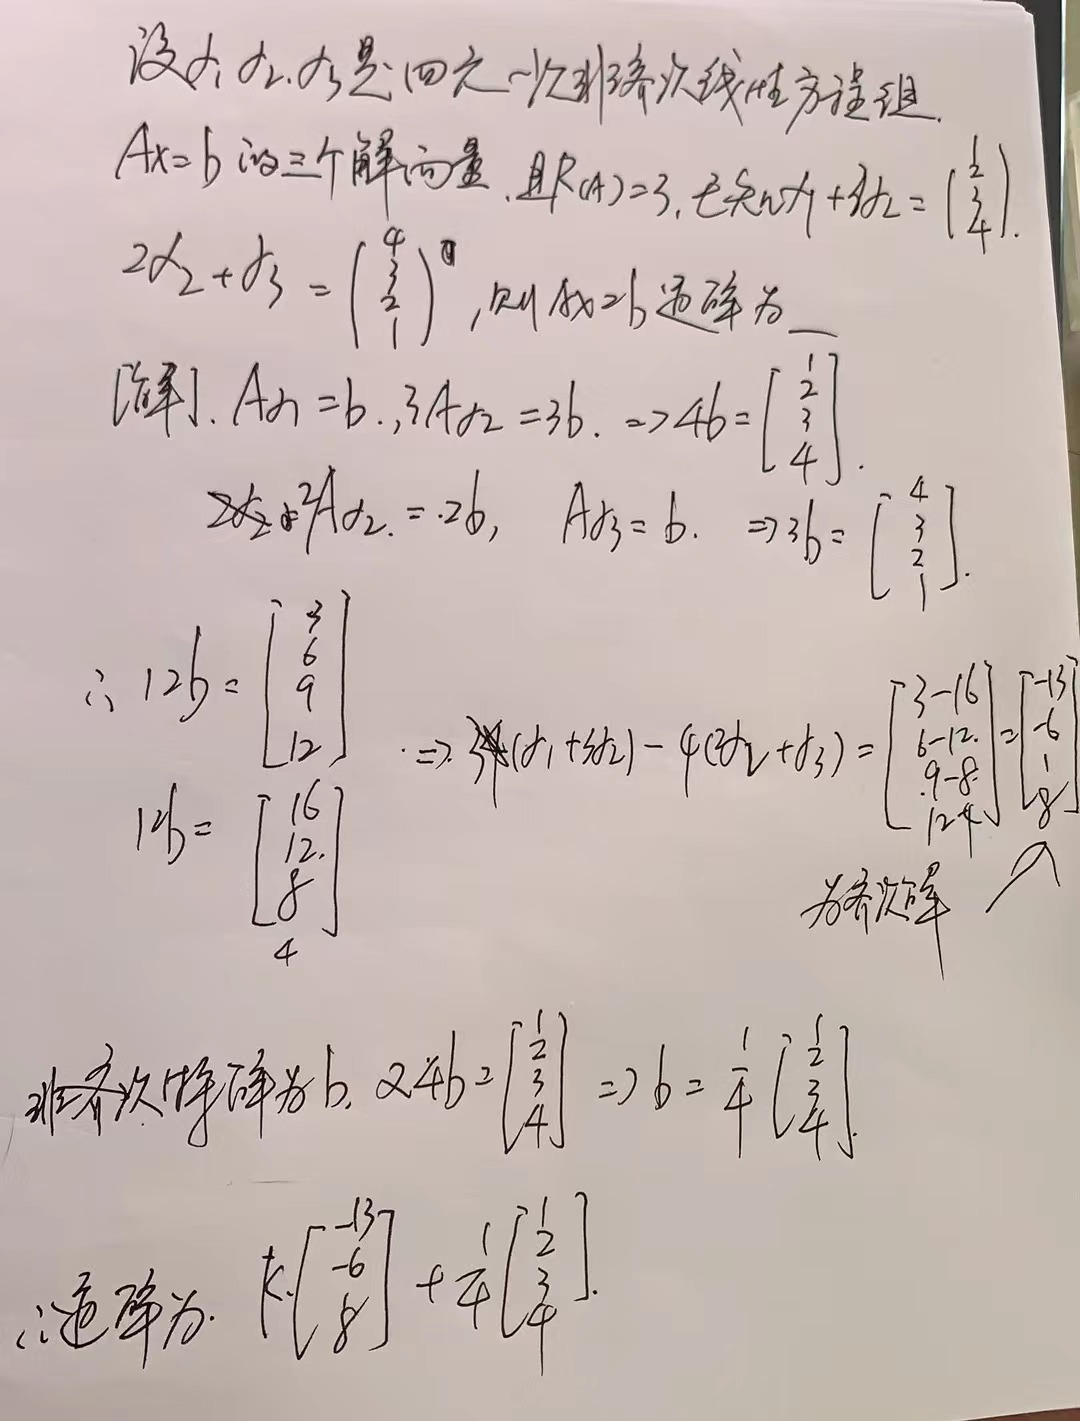 设α₁ α₂. α₃是四元一次非齐次线性方程组.
Ax=b 的三个解向量,且R(A)=3,已知α₁+3α₂=(1 2 3 4).
2α₂+α₃=(4 3 2 1),则Ax=b通解为__
[解]. Aα₁=b.,3Aα₂=3b. =>4b=[1 2 3 4].
2Aα₂.=.2b, Aα₃=b. =>3b=[4 3 2 1].
∴12b=[3 6 9 12]
=>.3(α₁+3α₂)-4(2α₂+α₃)=[3-16 6-12. 9-8 12-4]=[-13 -6 1 8]
12b=[16 12. 8 4]
为齐次解
非齐次特解为b. 又4b=[1 2 3 4]=>b=1/4[1 2 3 4].
∴通解为. k.[-13 -6 8]+1/4[1 2 3 4].